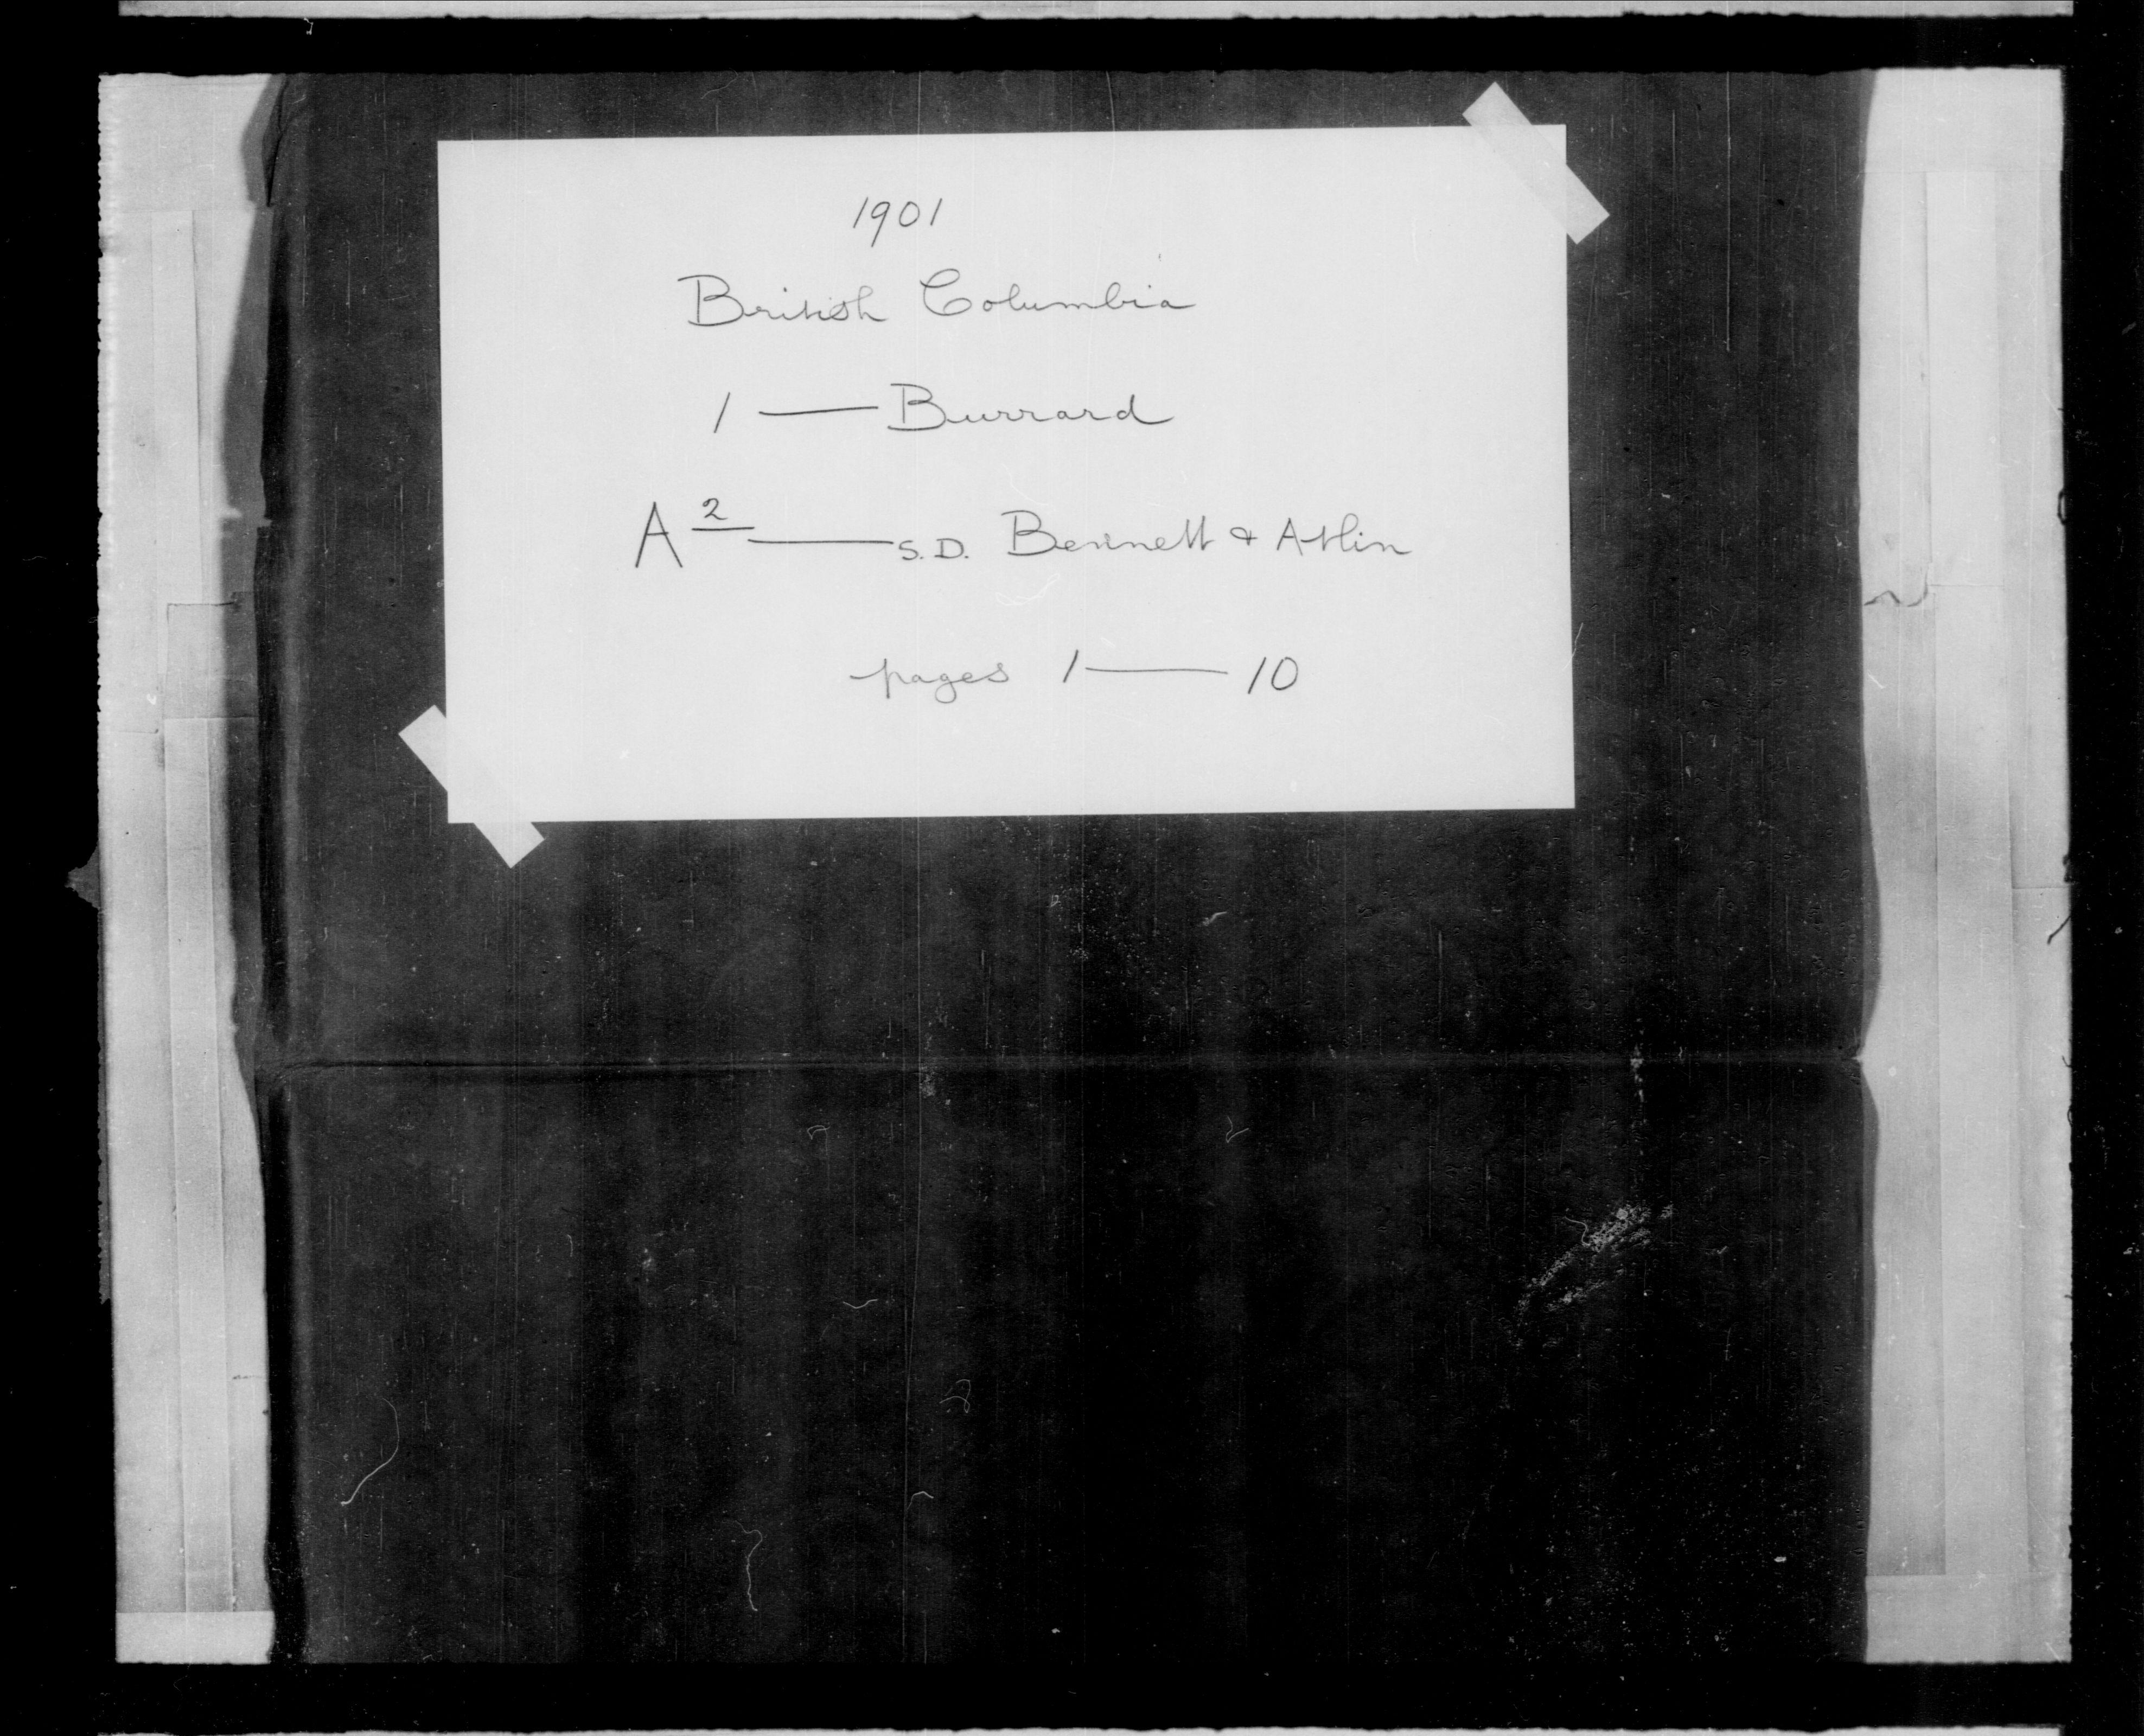 1901
British Columbia
1 — Burrard
A 2 — S.D. Bennett & Atlin
pages 1 — 10